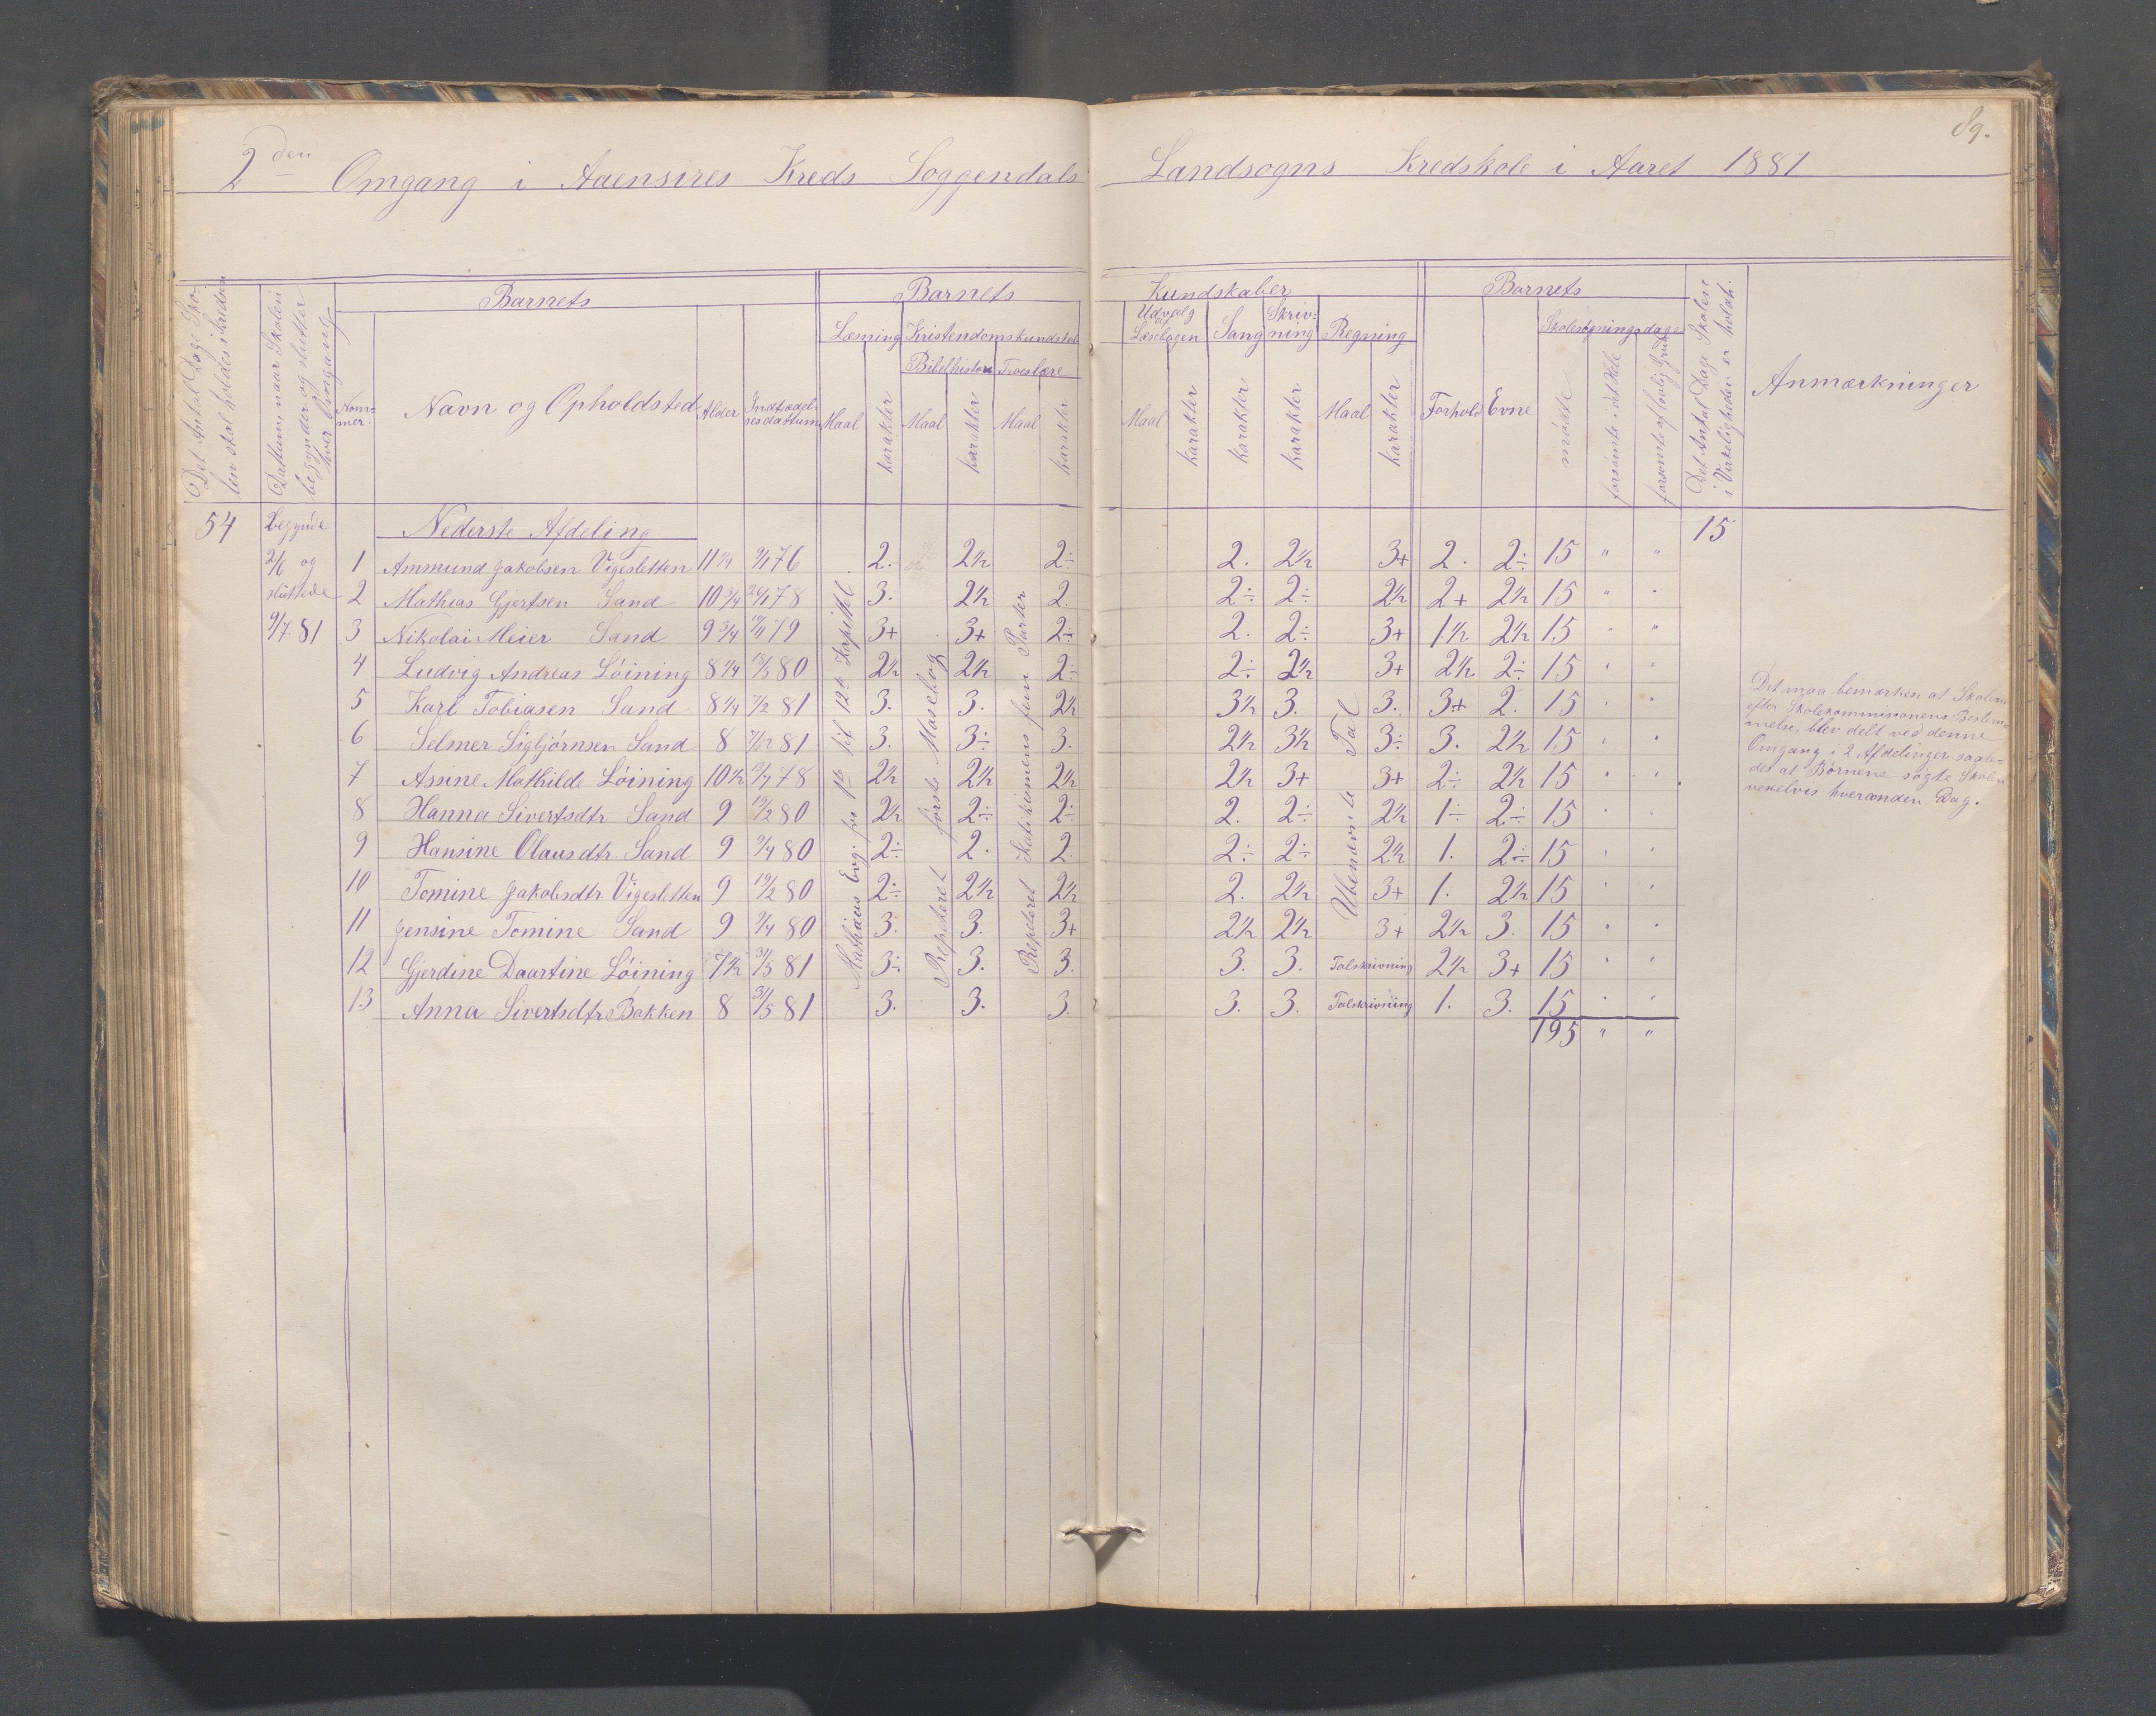 89.
2den Omgang i Aaensires Kreds Soggendals Landsogns Kredskole i Aaret 1881
Det Antal Dage Sko-
len skal holdes i Kredsen
Dattum, naar Skolen
begynder og slutter
hver Omgang
Barnets
Nom-
mer.
Navn og Opholdsted
Alder
Indtrædel-
sesdattum
Barnets Kundskaber
Læsning
Maal
karakter
Kristendomskundskab
Bibelhistorie
Maal
karakter
Troeslære
Maal
karakter
Udvalg
af
Læsebogen
Maal
karakter
Sang
karakter
Skriv-
ning
karakter
Regning
Maal
karakter
Barnets
Forhold
Evne
Skolesøgningsdage
mødede
forsømte i det Hele
forsømte af lovlig Grund
Det Antal Dage Skolen
i Virkeligheden er holdt.
Anmærkninger
54
begynde
2/6 og
sluttede
9/7 81
Nederste Afdeling
15
1 Ammund Jakobsen Vigesletten 11 1/4 9/1 76 2. 2½ 2÷ 2. 2½ 3+ 2. 2÷ 15 " "
2 Mathias Gjertsen Sand 10 3/4 26/1 78 3. 2½ 2. 2÷ 2÷ 2½ 2+ 2½ 15 " "
3 Nikolai Meier Sand 9 3/4 19/11 79 3+ 3+ 2÷ 2. 2÷ 3+ 1½ 2½ 15 " "
4 Ludvig Andreas Løining 8 1/4 18/3 80 2½ 2½ 2÷ 2÷ 2½ 3+ 2½ 2÷ 15 " "
5 Karl Tobiasen Sand 8 1/4 7/2 81 3. 3. 2½ 3½ 3. 3. 3+ 2. 15 " "
6 Selmer Sigbjørnsen Sand 8 7/2 81 3. 3÷ 3. 2½ 3½ 3÷ 3. 2½ 15 " "
7 Assine Mathilde Løining 10½ 13/7 78 2½ 2½ 2½ 2½ 3+ 3+ 2÷ 2½ 15 " "
8 Hanna Sivertsdtr Sand 9 19/2 80 2½ 2÷ 2÷ 2. 2÷ 2½ 1÷ 2÷ 15 " "
9 Hansine Olausdtr Sand 9 9/4 80 2÷ 2. 2. 2÷ 2÷ 2½ 1. 2÷ 15 " "
10 Tomine Jakobsdtr Vigesletten 9 19/2 80 2÷ 2½ 2½ 2. 2½ 3+ 1. 2½ 15 " "
11 Jensine Tomine Sand 9 9/4 80 3. 3. 3+ 2½ 2½ 3+ 2½ 3. 15 " "
12 Gjerdine Daartine Løining 7½ 31/5 81 3÷ 3. 3. 3. 3. Talskrivning 2½ 3+ 15 " "
13 Anna Sivertsdtr Bakken 8 31/5 81 3. 3. 3. 3. 3. Talskrivning 1. 3. 15 " "
195 " "
Mathæus Evg. fra 1ste til 12te Kapittel
Repeteret første Mosebog
Repeteret Katekismens fem Parter
Ubenævnte Tal
Det maa bemærkes, at Skolen
efter Skolekommisionens Bestem-
melse, blev delt ved denne
Omgang i 2 Afdelinger saale-
des at Børnene søgte Skolen
vexelvis hveranden Dag.